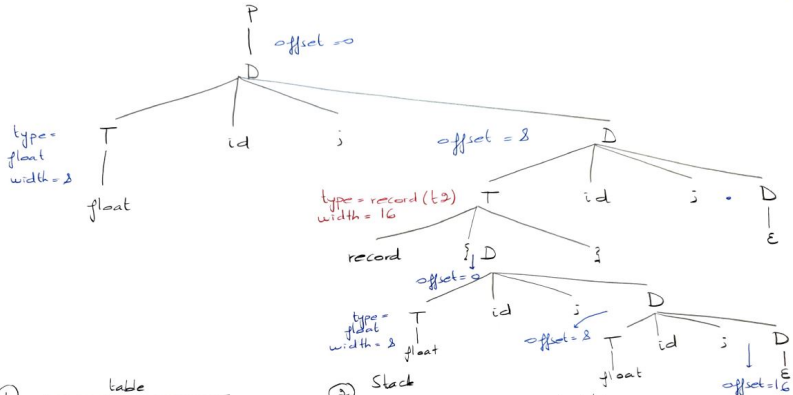 P
offset = 0
D
type = float width = 8
T
id
;
offset = 8
D
float
type = record (t2)
width = 16
T
id
;
D
ε
record
{
D
}
offset = 0
type = float width = 8
T
id
;
D
float
offset = 8
T
id
;
D
float
offset = 16
ε
① table
② Stack